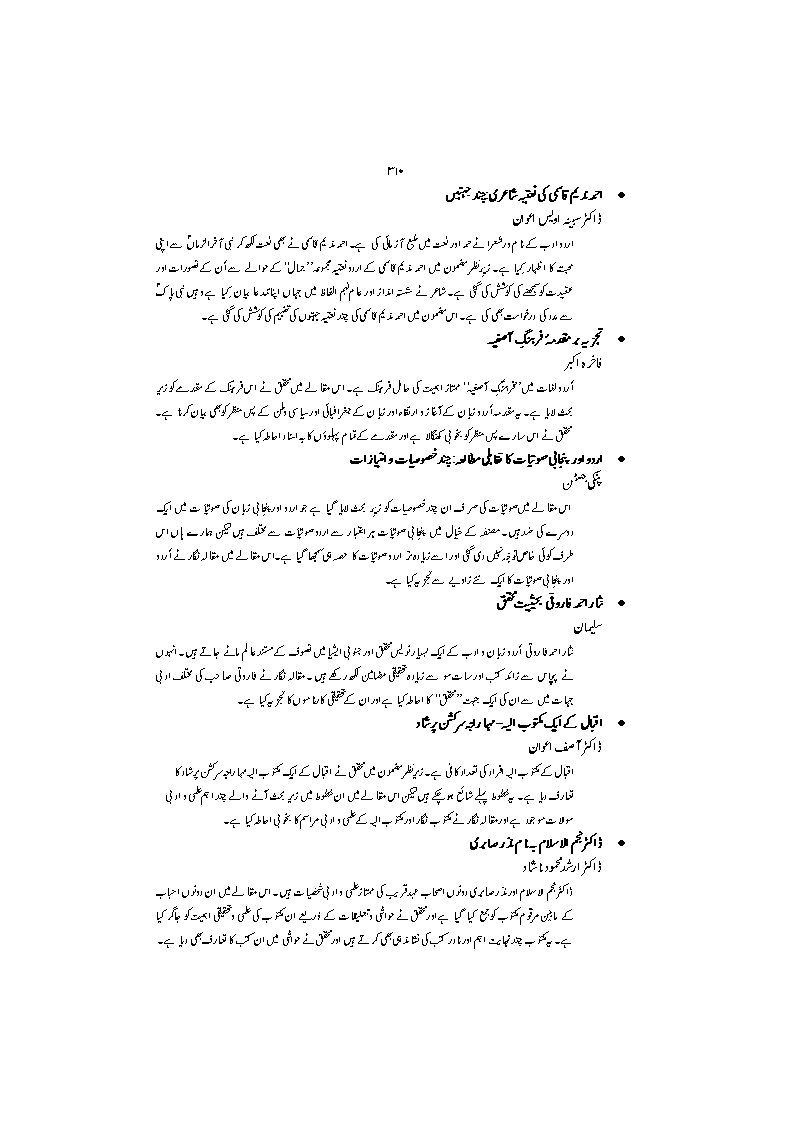 ۳۱۰
● احمد ندیم قاسمی کی نعتیہ شاعری: چند جہتیں
ڈاکٹر سبینہ اویس اعوان
اردو ادب کے نام ور شعرا نے حمد اور نعت میں طبع آزمائی کی ہے۔ احمد ندیم قاسمی نے بھی نعت لکھ کر نبی آخر الزماںؐ سے اپنی
محبت کا اظہار کیا ہے۔ زیرِ نظر مضمون میں احمد ندیم قاسمی کے اردو نعتیہ مجموعہ ’’جمال‘‘ کے حوالے سے اُن کے تصورات اور
عقیدت کو سمجھنے کی کوشش کی گئی ہے۔ شاعر نے شستہ انداز اور عام فہم الفاظ میں جہاں اپنا مدعا بیان کیا ہے وہیں نبی پاکؐ
سے مدد کی درخواست بھی کی ہے۔ اس مضمون میں احمد ندیم قاسمی کی چند نعتیہ جہتوں کی تفہیم کی کوشش کی گئی ہے۔
● تجزیہ بر مقدمۂ فرہنگِ آصفیہ
فاخرہ اکبر
اُردو لغات میں ’’فرہنگِ آصفیہ‘‘ ممتاز اہمیت کی حامل فرہنگ ہے۔ اس مقالے میں محقق نے اس فرہنگ کے مقدمے کو زیرِ
بحث لایا ہے۔ یہ مقدمہ اُردو زبان کے آغاز و ارتقاء اور زبان کے جغرافیائی اور سیاسی وطن کے پس منظر کو بھی بیان کرتا ہے۔
محقق نے اس سارے پس منظر کو بخوبی کھنگالا ہے اور مقدمے کے تمام پہلوؤں کا بہ اسناد احاطہ کیا ہے۔
● اردو اور پنجابی صوتیات کا تقابلی مطالعہ: چند خصوصیات و امتیازات
پنکی جسٹن
اس مقالے میں صوتیات کی صرف ان چند خصوصیات کو زیرِ بحث لایا گیا ہے جو اردو اور پنجابی زبان کی صوتیات میں ایک
دوسرے کی ضد ہیں۔ مصنفہ کے خیال میں پنجابی صوتیات ہر اعتبار سے اردو صوتیات سے مختلف ہیں لیکن ہمارے ہاں اس
طرف کوئی خاص توجہ نہیں دی گئی اور اسے زیادہ تر اردو صوتیات کا حصہ ہی سمجھا گیا ہے۔ اس مقالے میں مقالہ نگار نے اُردو
اور پنجابی صوتیات کا ایک نئے زاویے سے تجزیہ کیا ہے۔
● نثار احمد فاروقی بحیثیت محقق
سلیمان
نثار احمد فاروقی اُردو زبان و ادب کے ایک بسیار نویس محقق اور جنوبی ایشیا میں تصوف کے مستند عالم مانے جاتے ہیں۔ انہوں
نے پچاس سے زائد کتب اور سات سو سے زیادہ تحقیقی مضامین لکھ رکھے ہیں۔ مقالہ نگار نے فاروقی صاحب کی مختلف ادبی
جہات میں سے ان کی ایک جہت ’’محقق‘‘ کا احاطہ کیا ہے اور ان کے تحقیقی کارناموں کا تجزیہ کیا ہے۔
● اقبال کے ایک مکتوب الیہ - مہاراجہ سرکشن پرشاد
ڈاکٹر آصف اعوان
اقبال کے مکتوب الیہ افراد کی تعداد کافی ہے۔ زیرِ نظر مضمون میں محقق نے اقبال کے ایک مکتوب الیہ مہاراجہ سرکشن پرشاد کا
تعارف دیا ہے۔ یہ خطوط پہلے شائع ہو چکے ہیں لیکن اس مقالے میں ان خطوط میں زیرِ بحث آنے والے چند اہم علمی و ادبی
سوالات موجود ہے اور مقالہ نگار نے مکتوب نگار اور مکتوب الیہ کے علمی و ادبی مراسم کا بخوبی احاطہ کیا ہے۔
● ڈاکٹر نجم الاسلام بہ نام نذر صابری
ڈاکٹر ارشد محمود ناشاد
ڈاکٹر نجم الاسلام اور نذر صابری دونوں اصحاب عہدِ قریب کی ممتاز علمی و ادبی شخصیات ہیں۔ اس مقالے میں ان دونوں احباب
کے مابین مرقوم مکتوب کو جمع کیا گیا ہے اور محقق نے حواشی و تعلیقات کے ذریعے ان مکتوب کی علمی و تحقیقی اہمیت کو جاگر کیا
ہے۔ یہ مکتوب چند نہایت اہم اور نادر کتب کی نشاندہی بھی کرتے ہیں اور محقق نے حواشی میں ان کتب کا تعارف بھی دیا ہے۔